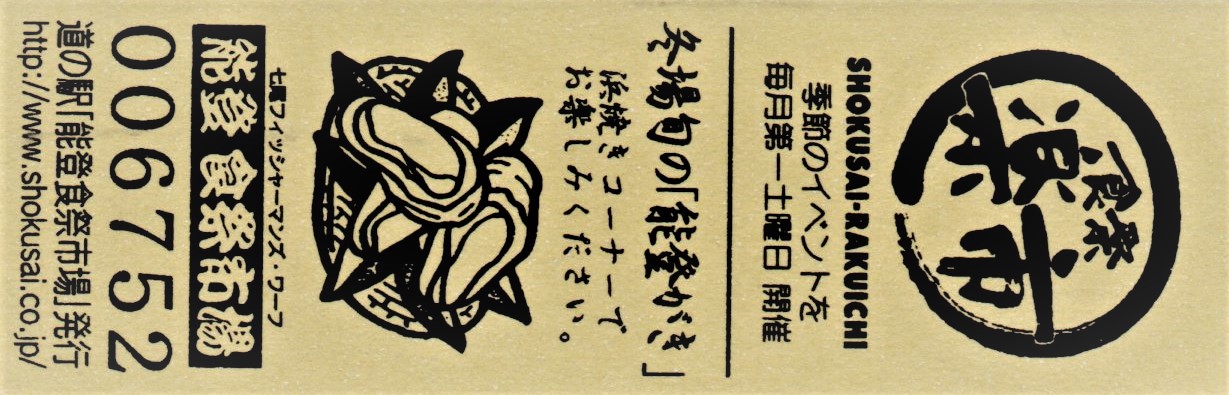 食祭
楽市
SHOKUSAI・RAKUICHI
季節のイベントを
毎月第一土曜日 開催
冬場旬の「能登がき」
浜焼きコーナーで
お楽しみください。
七尾フィッシャーマンズ・ワーフ
能登 食祭市場
006752
道の駅「能登食祭市場」発行
http://www.shokusai.co.jp/